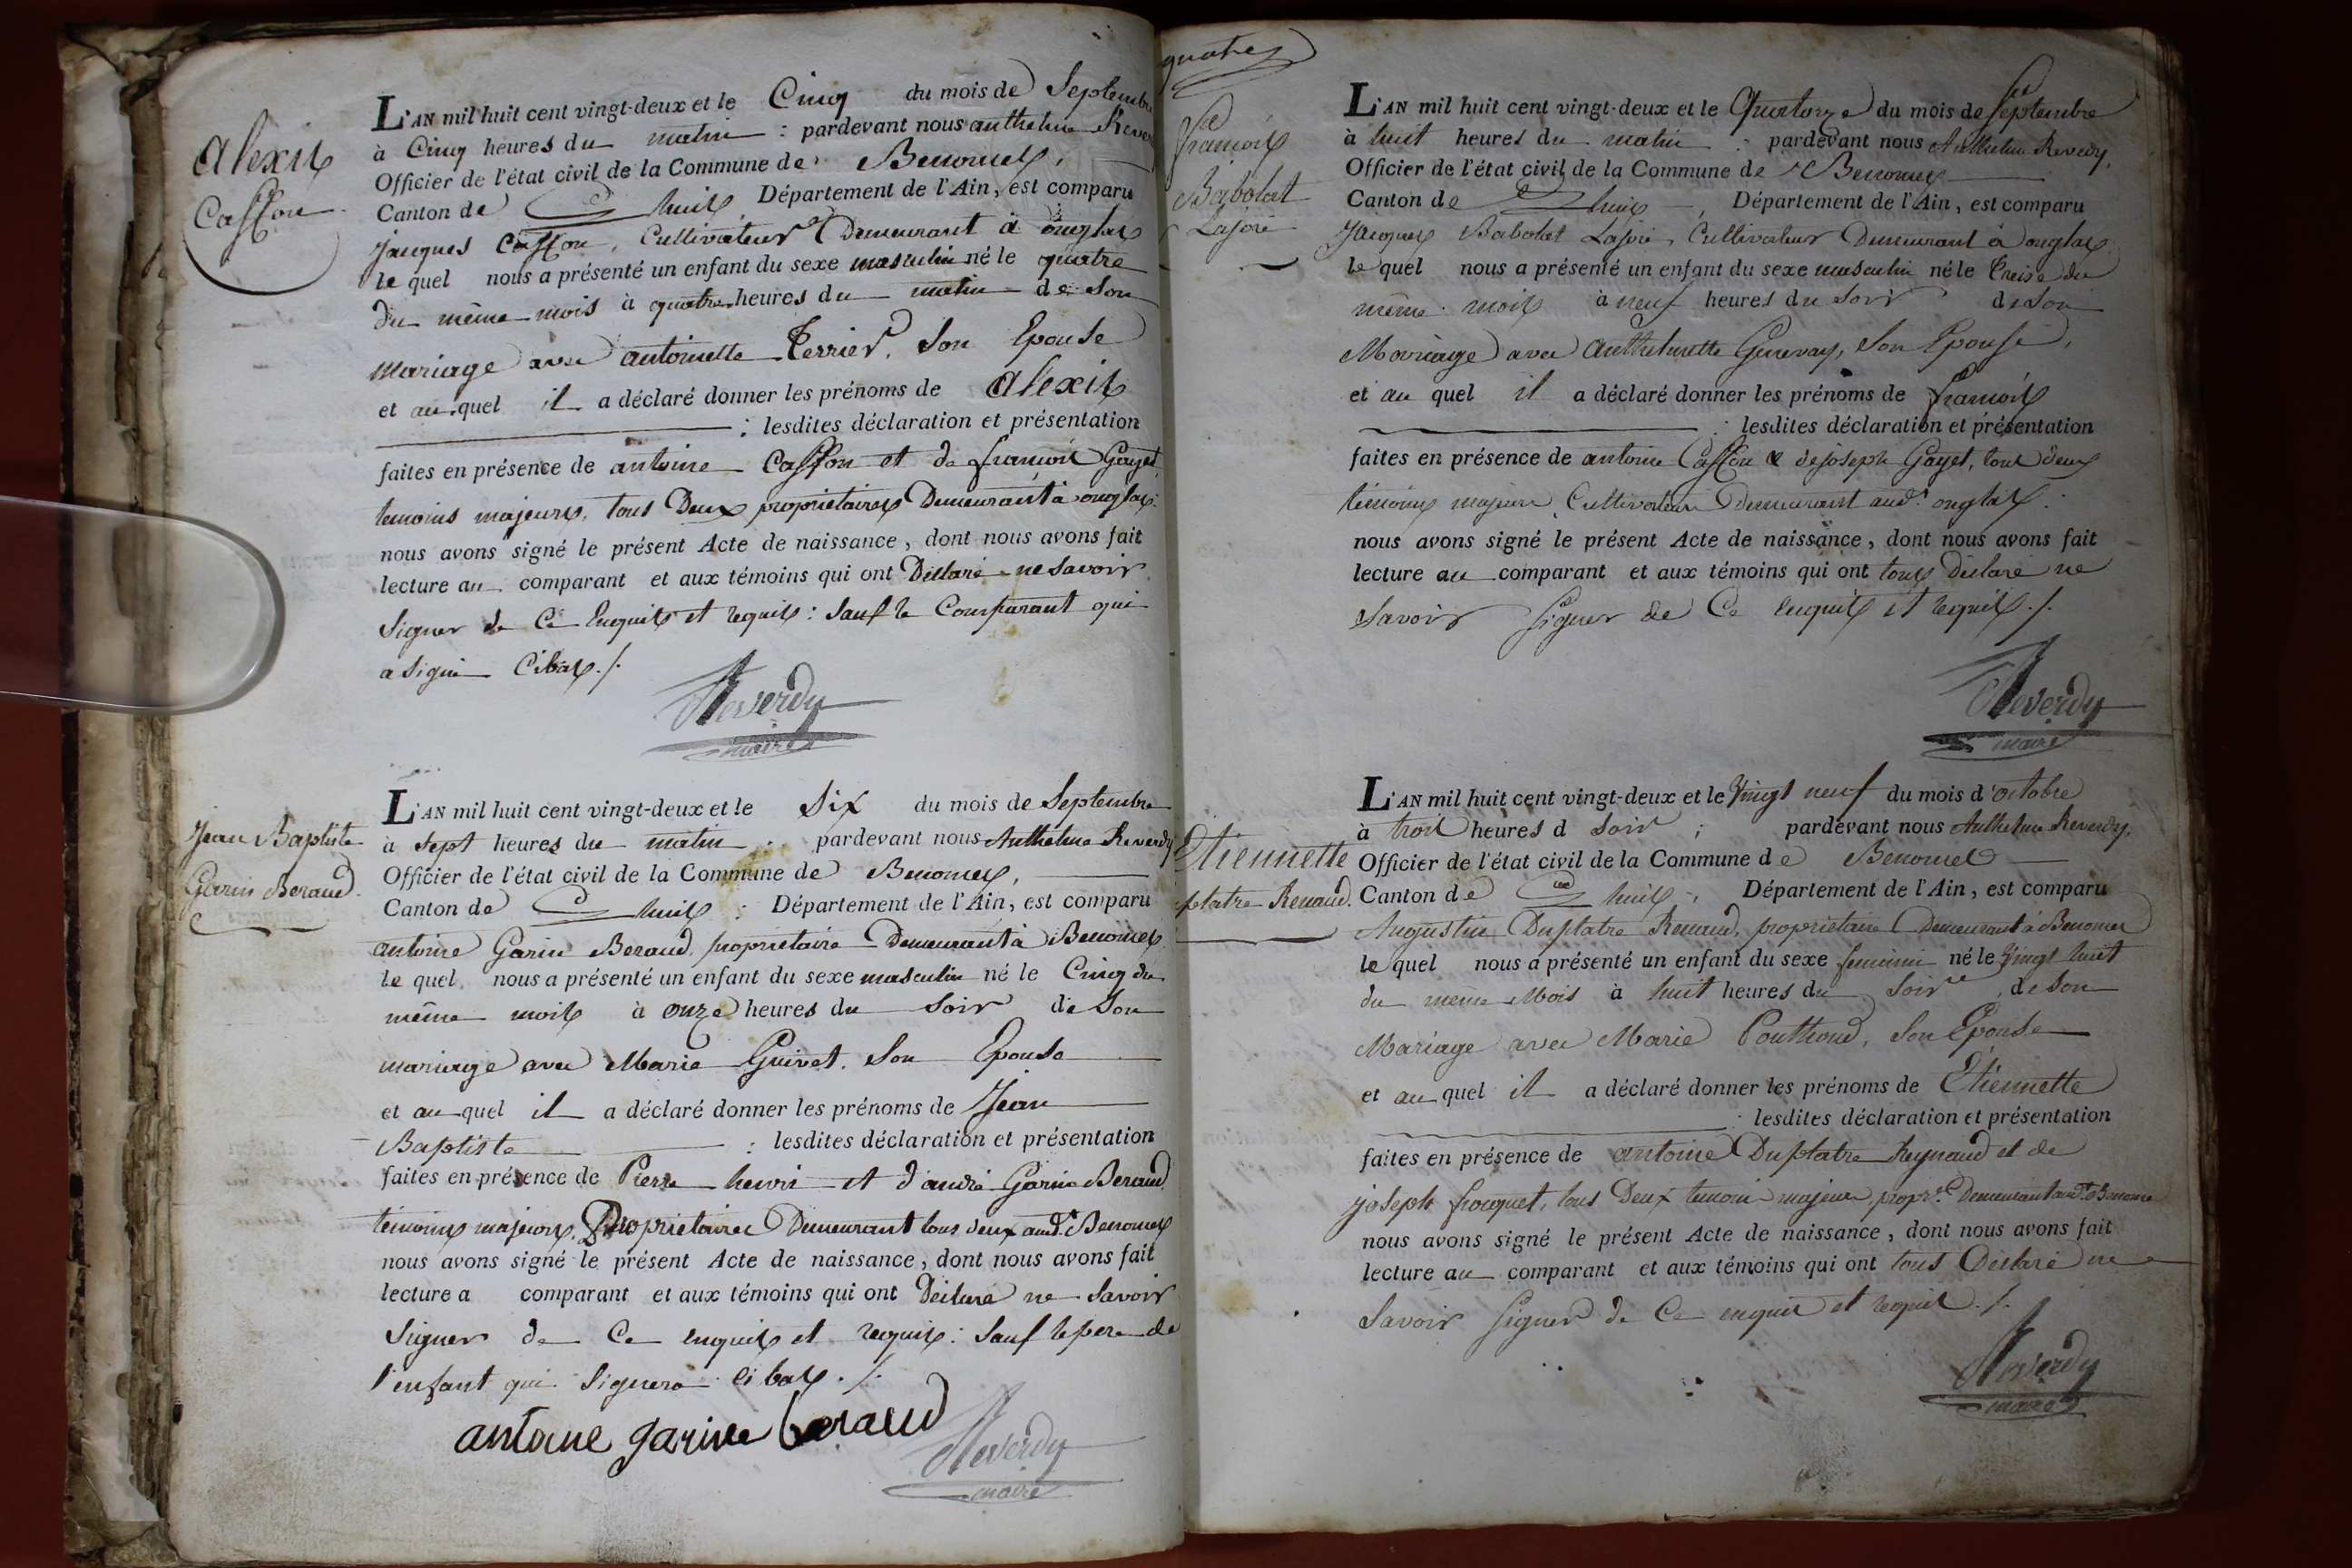 Alexis
Casson
L'AN mil huit cent vingt-deux et le Cinq du mois de Septembre
à Cinq heures du matin : pardevant nous anthelme Rever
Officier de l'état civil de la Commune de Benonces,
Canton de Lhuis Département de l'Ain, est comparu
jacques Casson, Cultivateur Demeurant à onglas
le quel nous a présenté un enfant du sexe masculin né le quatre
du même mois à quatre heures du matin de Son
mariage avec antoinette Perrier, Son Epouse
et au quel il a déclaré donner les prénoms de Alexis
: lesdites déclaration et présentation
faites en présence de antoine Casson et de françois Gayet
temoins majeurs, tous Deux propriétaires Demeurant à onglas.
nous avons signé le présent Acte de naissance, dont nous avons fait
lecture au comparant et aux témoins qui ont Déclaré ne Savoir
Signer de Ce Enquis et requis : Sauf le Comparant qui
a Signé Cibas ./.
Reverdy
maire
Jean Baptiste
Garin Beraud.
L'AN mil huit cent vingt-deux et le Six du mois de Septembre
à Sept heures du matin . pardevant nous Anthelme Reverdy
Officier de l'état civil de la Commune de Benonces,
Canton de Lhuis : Département de l'Ain, est comparu
antoine Garin Beraud, propriétaire Demeurant à Benonces
le quel nous a présenté un enfant du sexe masculin né le Cinq du
même mois à onze heures du Soir de Son
mariage avec Marie Guivet, Son Epouse
et au quel il a déclaré donner les prénoms de Jean
Baptiste : lesdites déclaration et présentation
faites en présence de Pierre henri et d'andré Garin Beraud
témoins majeurs, Propriétaires Demeurant tous deux audt. Benonces
nous avons signé le présent Acte de naissance, dont nous avons fait
lecture a comparant et aux témoins qui ont Déclaré ne Savoir
Signer de Ce enquis et requis : Sauf le pere de
l'enfant qui Signera Cibas ./.
antoine garin beraud
Reverdy
maire
quatre
françois
Babolat
Lajoie
L'AN mil huit cent vingt-deux et le Quatorze du mois de Septembre
à huit heures du matin : pardevant nous Anthelme Reverdy,
Officier de l'état civil de la Commune de Benonces
Canton de Lhuis, Département de l'Ain, est comparu
Jacques Babolat Lajoie, Cultivateur Demeurant à onglas
le quel nous a présenté un enfant du sexe masculin né le treise du
même mois à neuf heures du Soir de Son
Mariage avec Anthelmette Genevay, Son Epouse,
et au quel il a déclaré donner les prénoms de françois
: lesdites déclaration et présentation
faites en présence de antoine Casson & de joseph Gayet, tous deux
témoins majeurs Cultivateurs Demeurant audt. onglas.
nous avons signé le présent Acte de naissance, dont nous avons fait
lecture au comparant et aux témoins qui ont tous Déclaré ne
Savoir Signer de Ce enquis et requis ./.
Reverdy
maire
Etiennette
platre Renaud.
L'AN mil huit cent vingt-deux et le Vingt neuf du mois d'octobre
à trois heures d Soir ; pardevant nous Anthelme Reverdy,
Officier de l'état civil de la Commune de Benonces
Canton de Lhuis ; Département de l'Ain, est comparu
Augustin Duplatre Renaud, propriétaire Demeurant à Benonces
le quel nous a présenté un enfant du sexe feminin né le Vingt huit
du même Mois à huit heures du Soir de Son
Mariage avec Marie Ponthoud, Son Epouse
et au quel il a déclaré donner les prénoms de Etiennette
: lesdites déclaration et présentation
faites en présence de antoine Duplatre Reynaud et de
joseph fouquet, tous Deux temoins majeurs, propres. Demeurant audt. Benonce
nous avons signé le présent Acte de naissance, dont nous avons fait
lecture au comparant et aux témoins qui ont tous Déclaré ne
Savoir Signer de Ce enquis et requis ./.
Reverdy
maire